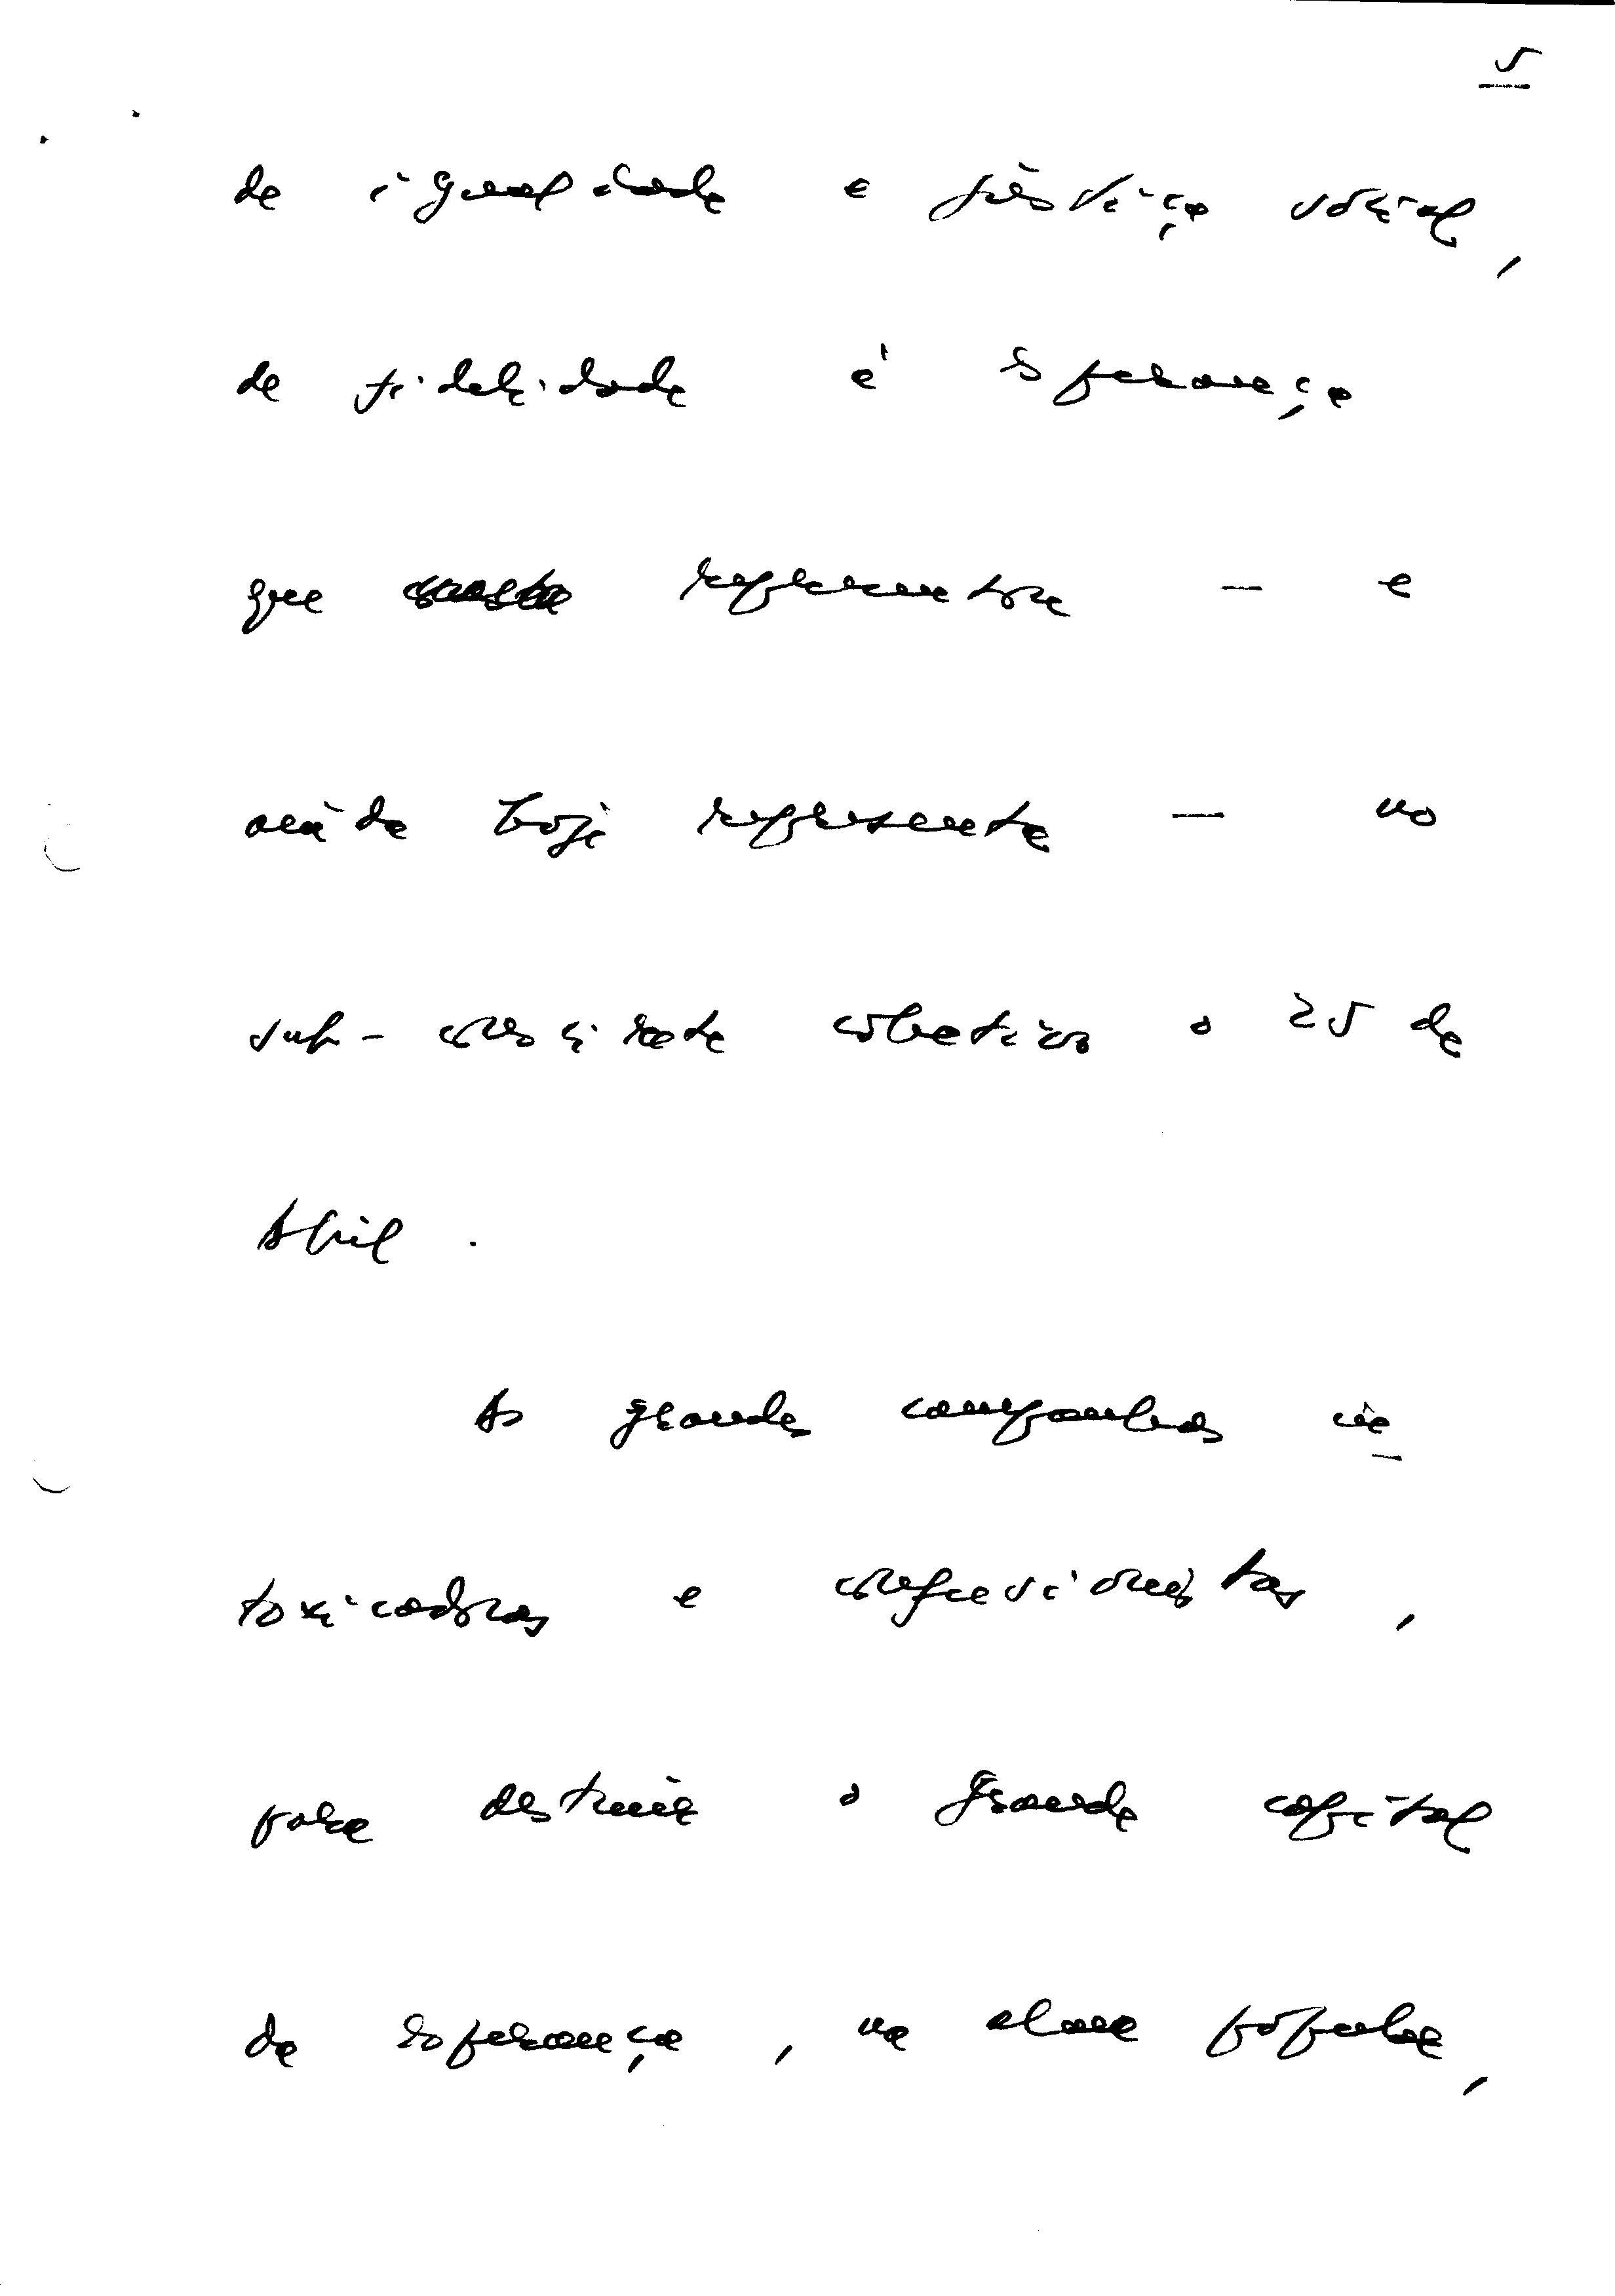 5
de igualdade e justiça social,
de fidelidade à esperança
que representou — e
ainda hoje representa — no
sub-consciente colectivo o 25 de
Abril.
As grandes campanhas in
toxicadoras e confusionistas,
para destruir o grande capital
de esperança, na alma popular,